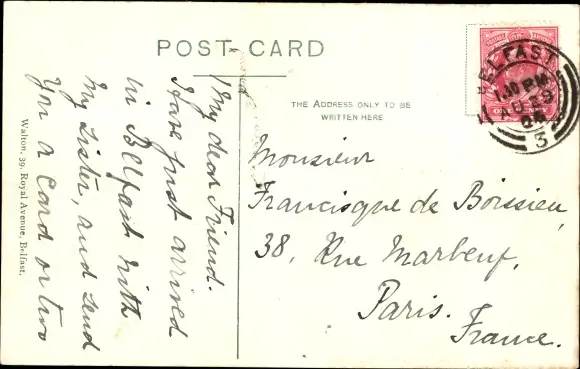 POST CARD
THE ADDRESS ONLY TO BE
WRITTEN HERE
BELFAST
PM
AU 29
04
3
Monsieur
Francisque de Boissieu,
38, Rue Marbeuf,
Paris.
France.
My dear Friend.
Have just arrived
in Belfast with
My Sister, and send
You a Card or two
Walton, 39, Royal Avenue, Belfast.